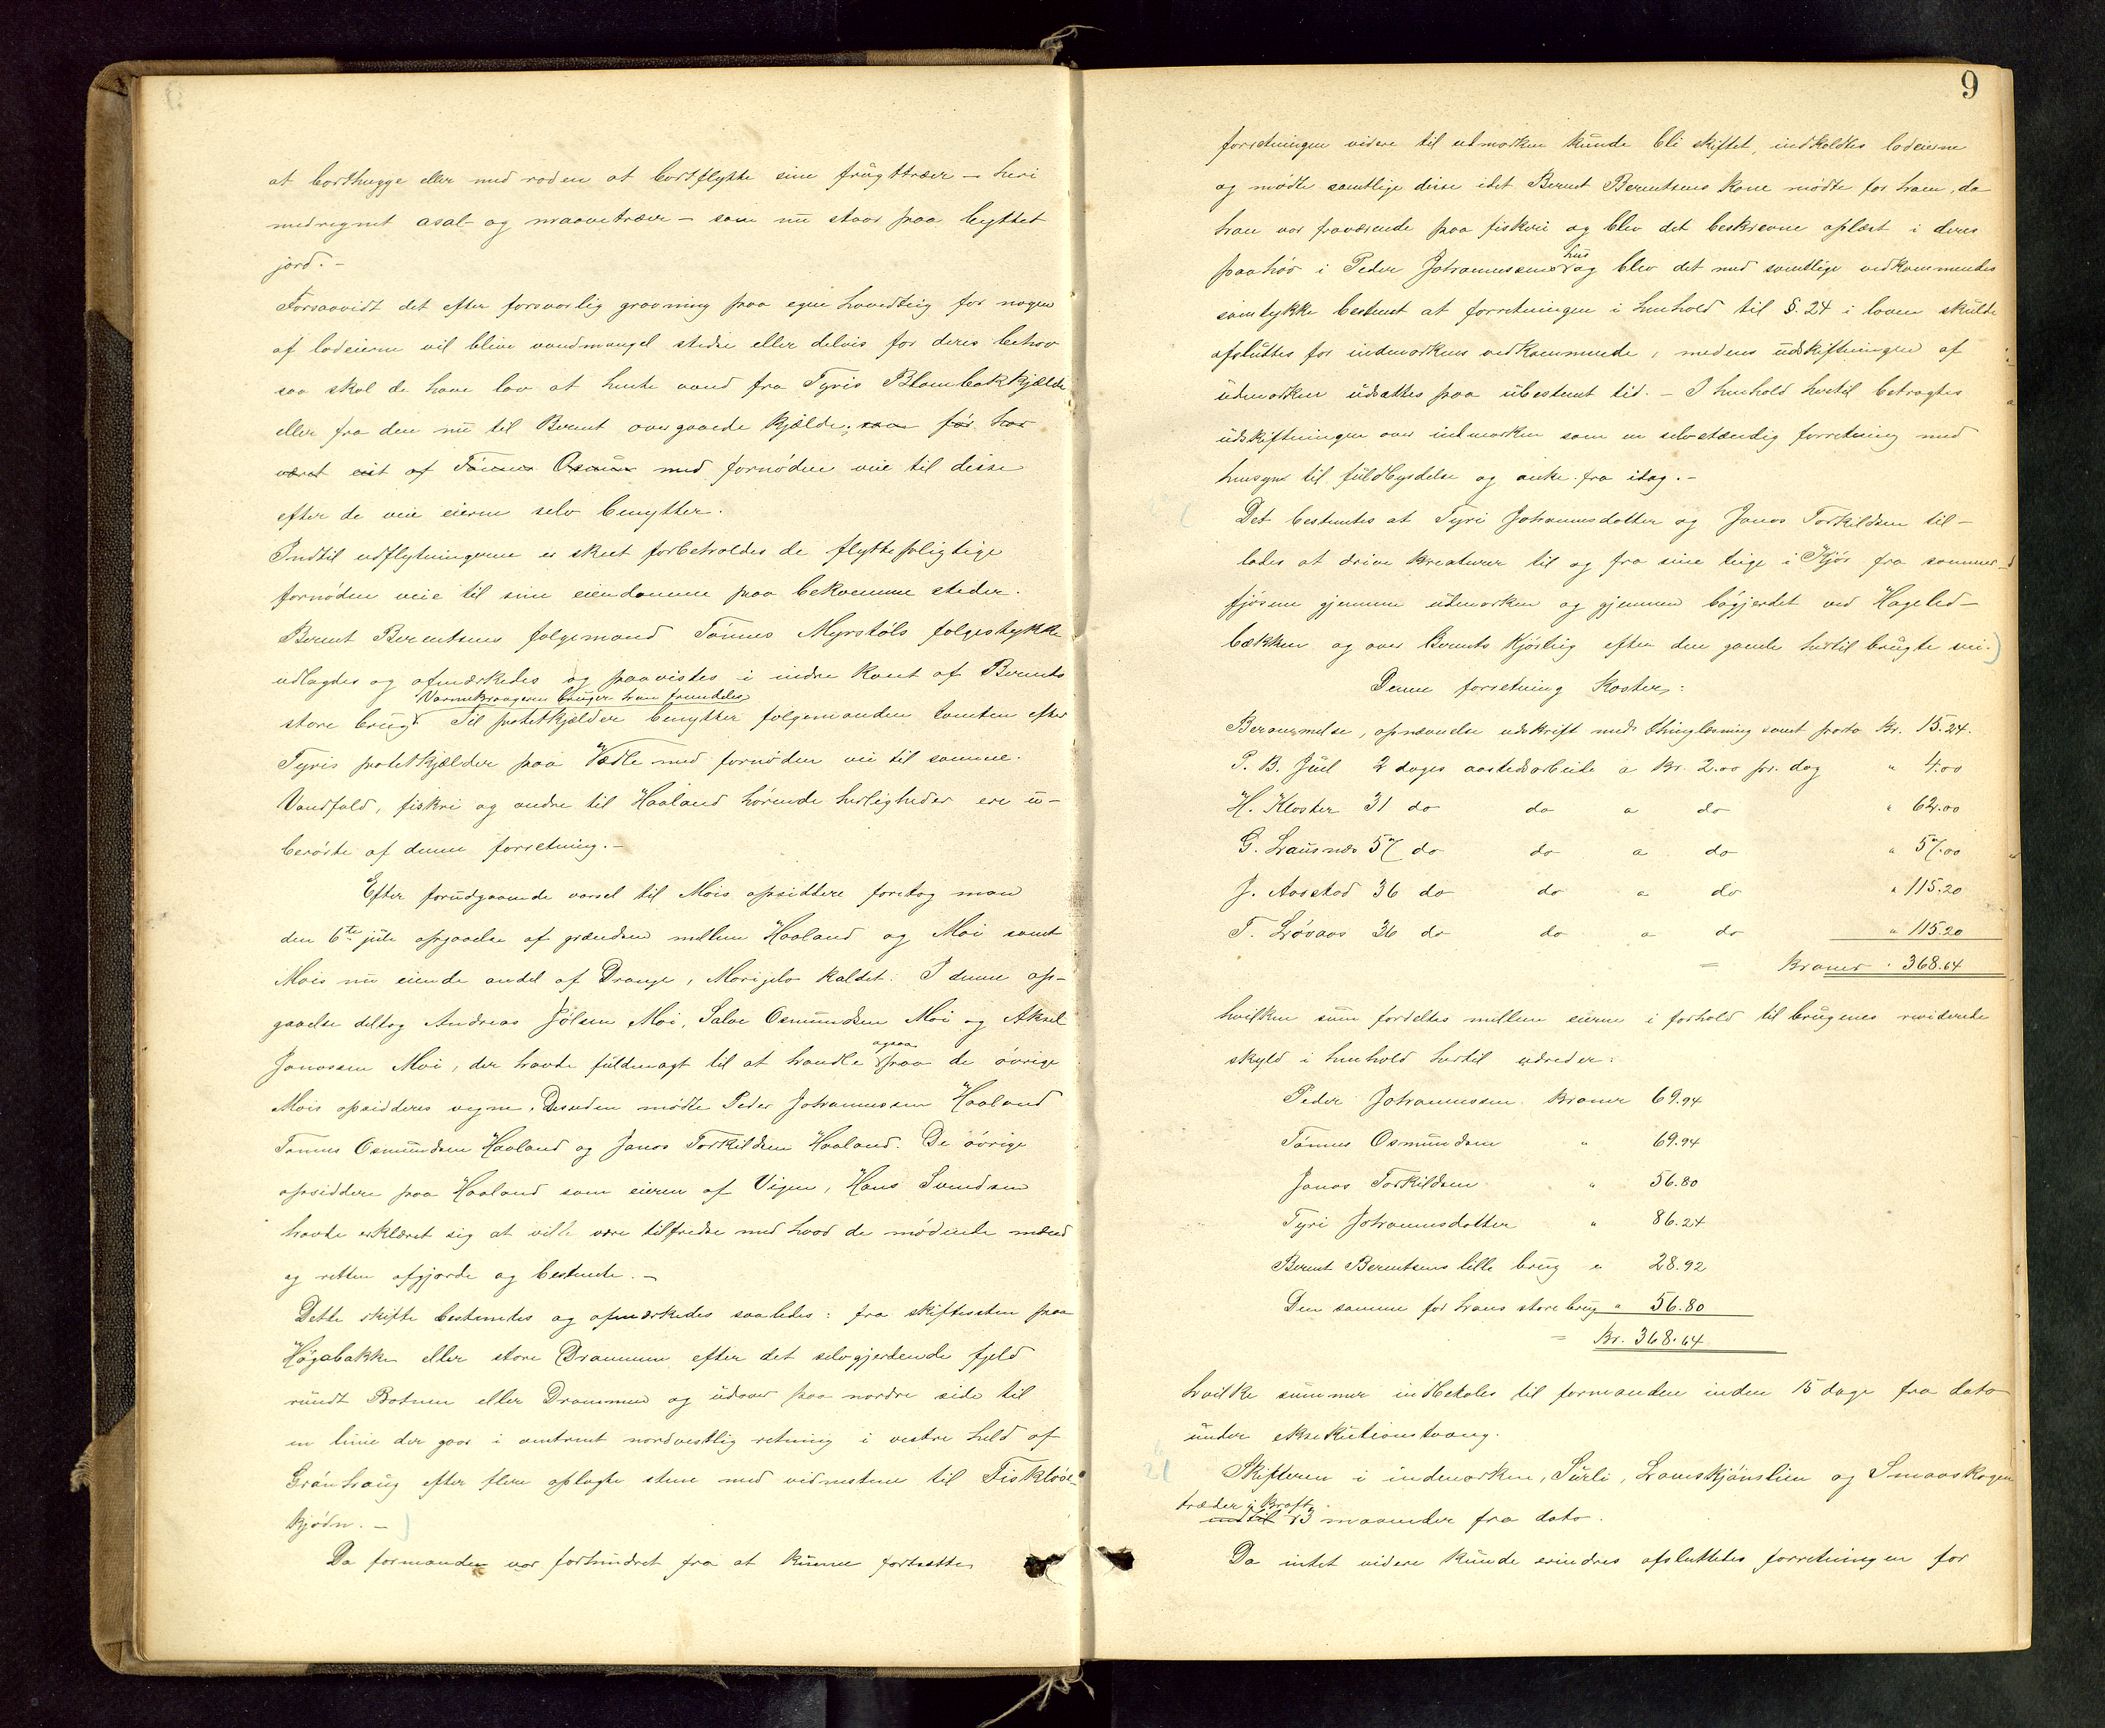 at borthugge eller med roden at bortflytte sine frugttrær – heri
medregnet asal- og moraavetræer – som nu staar paa byttet
jord. –
Forsaavidt det efter forsvarlig gravning paa egen hovedteig for nogen
af lodeierne vil blive vandmangel stedse eller delvis for deres behov
saa skal de have lov at hente vand fra Tyris Blombakkjælde
eller fra den nu til Berent overgaaede kjælde, som før har
været eiet af Tønnes Osmun med fornøden veie til disse
efter de veie eierne selv benytter.
Indtil udflytningerne er skeet forbeholdes de flyttepligtige
fornøden veie til sine eiendomme paa bekvemme steder.
Berent Berentsens folgemand Tønnes Myrstøls folgestykke
udlagdes og afmærkedes og paavistes i indre kant af Berents
Vommekraagerne bruger han fremdeles
store brug. Til potetkjælder benytter folgemanden tomten efter
Tyris potetkjælder paa Vedle med fornøden vei til samme.
Vandfald, fiskri og andre til Haaland hørende herligheder ere u-
berørte af denne forretning. –
Efter forudgaaende varsel til Mois opsiddere foretog man
den 6te juli opgaaelse af grændsen mellem Haaland og Moi samt
Mois nu eiende andel af Drange, Morigjelo kaldet. I denne op-
gaaelse deltog Andreas Jølsen Moi, Salve Osmundsen Moi og Aksel
Janassen Moi, der havde fuldmagt til at handle ogsaa paa de øvrige
Mois opsidderes vegne. Desuden mødte Peder Johannessen Haaland
Tønnes Osmundsen Haaland og Janas Torkildsen Haaland. De øvrige
opsiddere paa Haaland som eieren af Vigen, Hans Svendsen
havde erklæret sig at ville være tilfredse med hvad de mødende mænd
og retten afgjorde og bestemte. –
Dette skifte bestemtes og afmærkedes saaledes: fra skiftesten paa
Høgabakke eller store Drammen efter det selvgjerdende fjeld
rundt Botnen eller Drammen og udover paa nordre side til
en linie der gaar i omtrent nordvestlig retning i vestre held af
Grønhaug efter flere oplagte stene med vidnestene til Fiskløs-
kjødn. –
Da formanden var forhindret fra at kunne fortsætte
9
forretningen videre til udmarken kunde bli skiftet, indkaldtes lodeierne
og mødte samtlige disse idet Berent Berentsens kone mødte for ham, da
han var fraværende paa fiskeri og blev det beskrevne oplæst i deres
paahør i Peder Johannessens hus og blev det med samtlige vedkommendes
samtykke bestemt at forretningen i henhold til §. 24 i loven skulde
afsluttes for indmarkens vedkommende, medens udskiftningen af
udmarken udsattes paa ubestemt tid. – I henhold hertil betragtes
udskiftningen over indmarken som en selvstændig forretning med
hensyn til fuldbyrdelse og anke fra idag. –
Det bestemtes at Tyri Johannesdatter og Janas Torkildsen til-
lades at drive kreaturer til og fra sine teige i Kjør fra sommer-
fjøsene gjennem udmarken og gjennem bøgjerdet ved Hageled-
bækken og over Berents Kjørteig efter den gamle hertil brugte vei.
Denne forretning koster:
Berammelse, opnævnelse udskrift med thinglæsning samt porto Kr. 15.24.
P. B. Juel 2 dages aastedsarbeide a Kr. 2.00 pr. dag " 4.00
H. Kloster 31 do do a do " 62.00
G. Lausnes 57 do do a do " 57.00
J. Aarstad 36 do do a do " 115.20
T. Løvaas 36 do do a do " 115.20
= Kroner 368.64
hvilken sum fordeltes mellem eierne i forhold til brugenes reviderede
skyld i henhold hertil udreder:
Peder Johannessen Kroner 69.94
Tønnes Osmundsen " 69.94
Janas Torkildsen " 56.80
Tyri Johannesdatter " 86.24
Berent Berentsens lille brug " 28.92
Den samme for hans store brug " 56.80
= Kr. 368.64
hvilke summer indbetales til formanden inden 15 dage fra dato
under eksekutionstvang.
Skifteren i indmarken, Surli, Lomskjønslien og Smaaskogen
træder i kraft
indtil 3 maaneder fra dato.
Da intet videre kunde erindres afsluttedes forretningen for